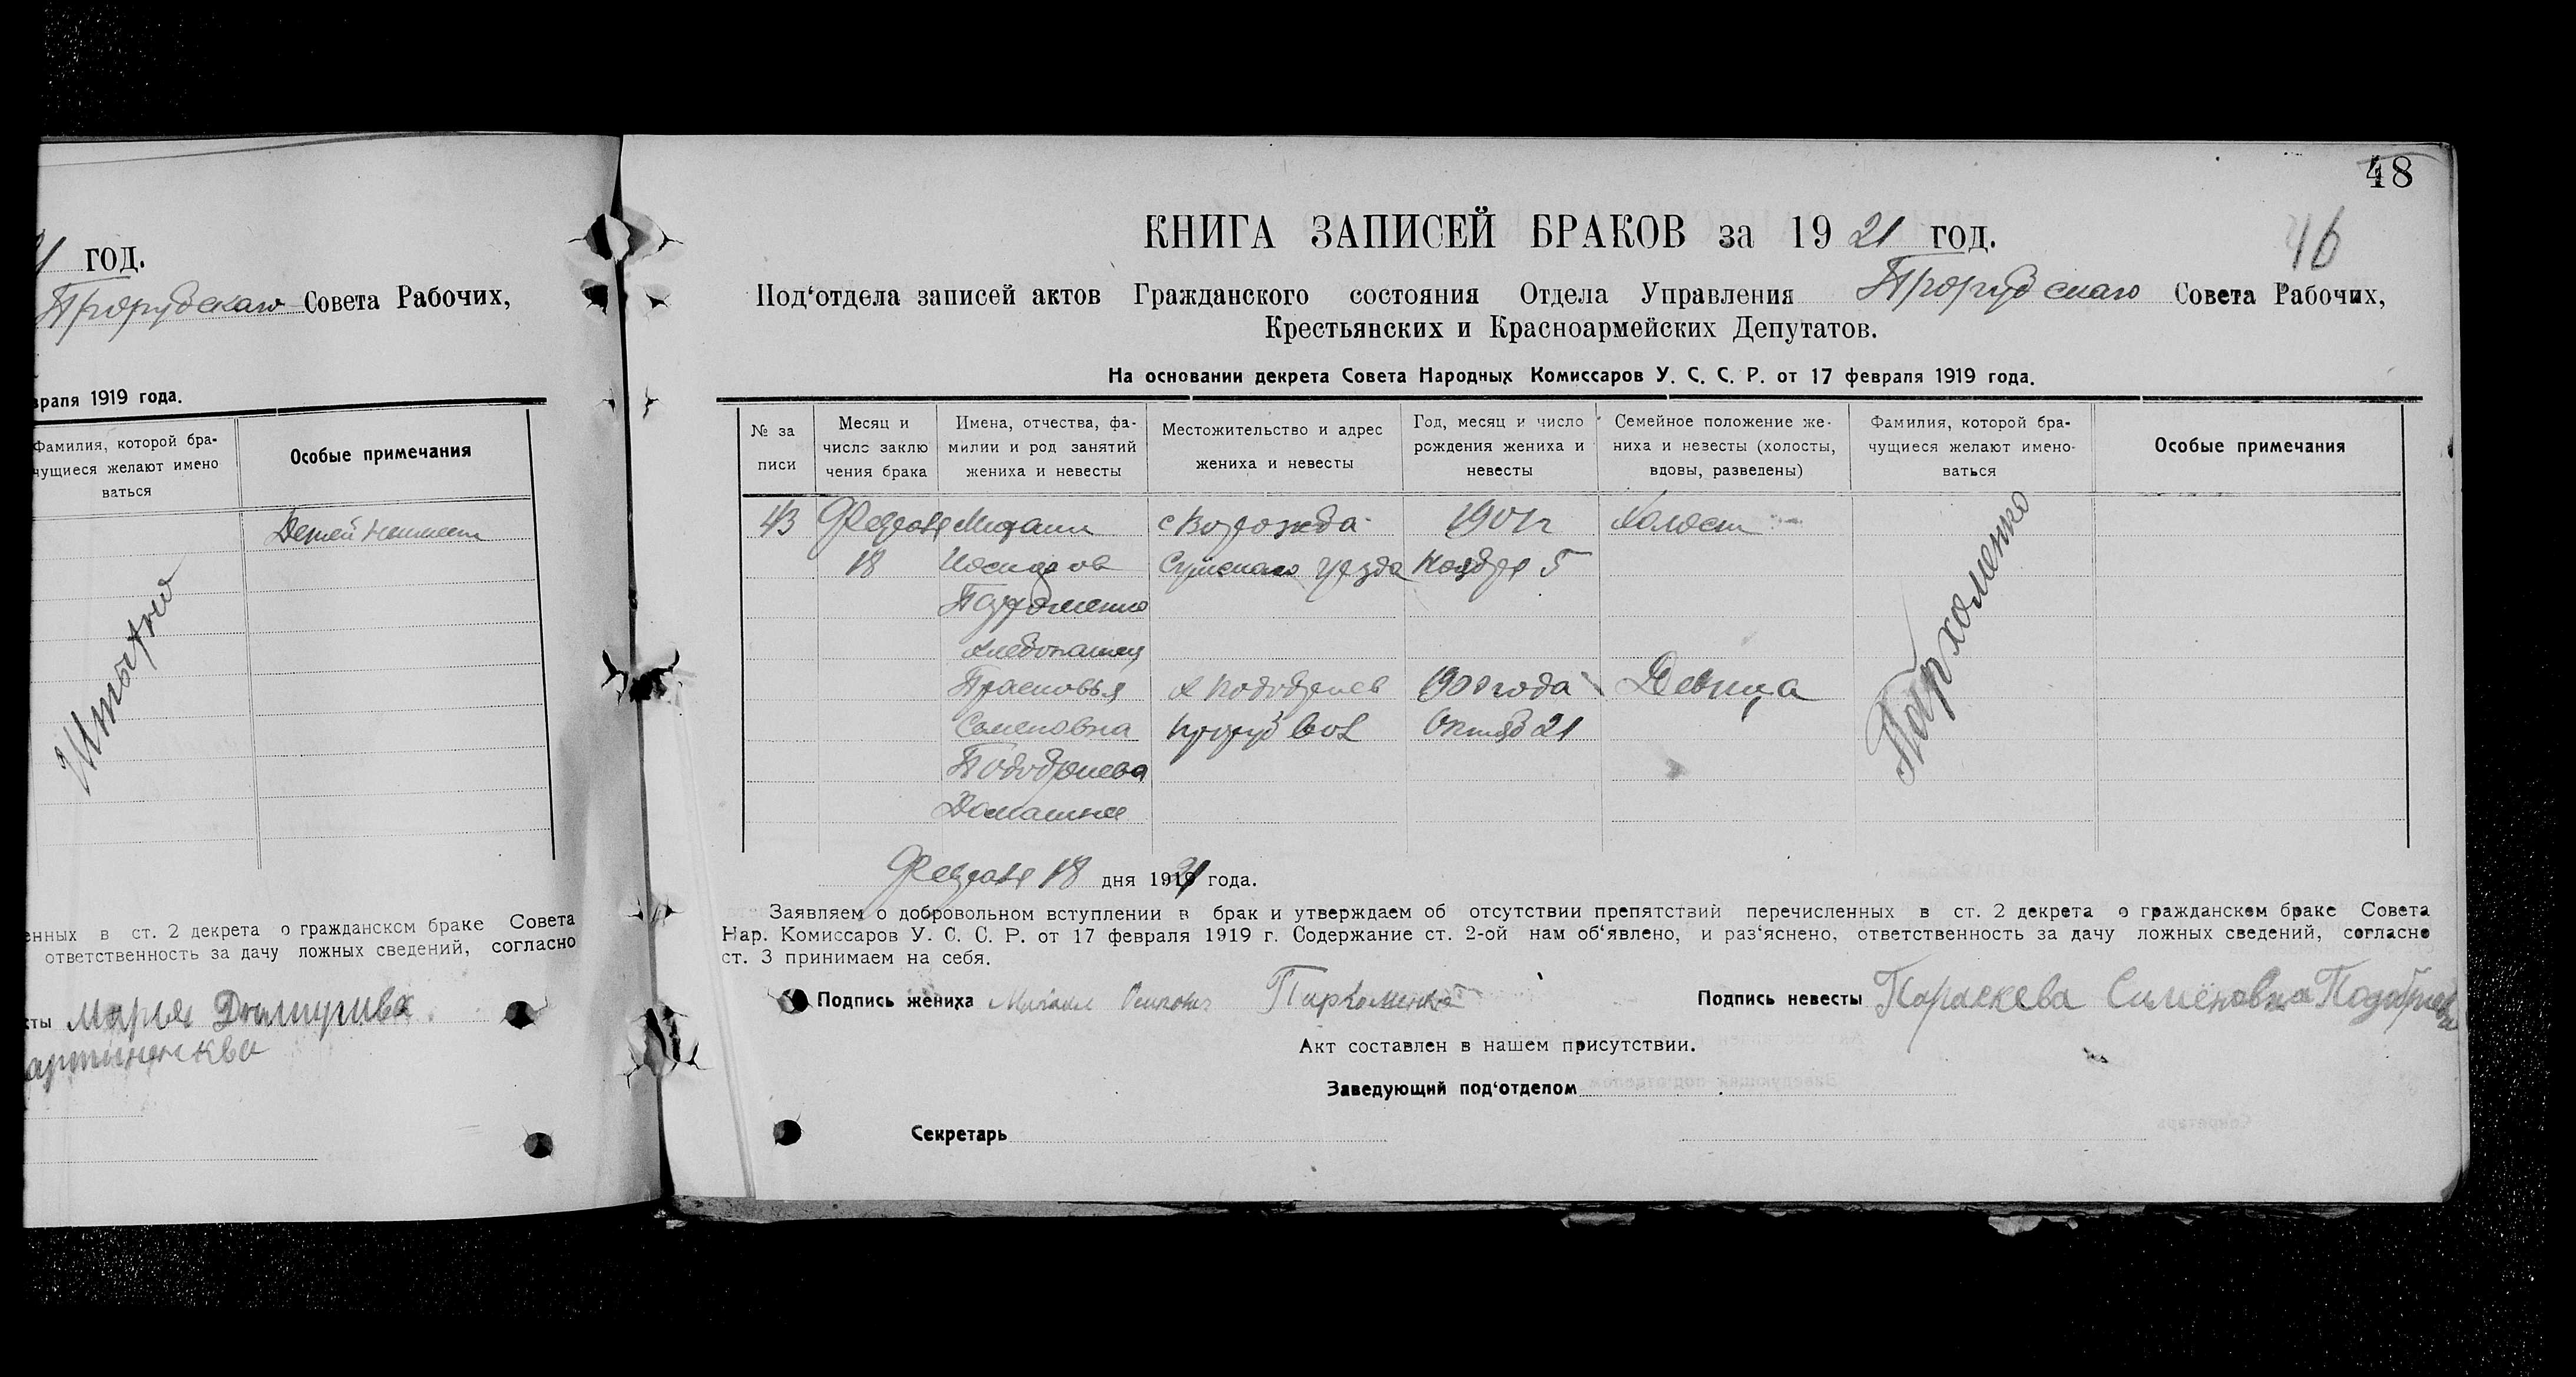 год.
Прорубскаго Совета Рабочих,
враля 1919 года.
Фамилия, которой бра-
чущиеся желают имено
ваться
Особые примечания
Детей
енных в ст. 2 декрета о гражданском браке Совета
ответственность за дачу ложных сведений, согласно
сты Мария
48
46
КНИГА ЗАПИСЕЙ БРАКОВ за 1921 год.
Под‘отдела записей актов Гражданского состояния Отдела Управления Прорубскаго Совета Рабочих,
Крестьянских и Красноармейских Депутатов.
На основании декрета Совета Народных Комиссаров У. С. С. Р. от 17 февраля 1919 года.
№ за
писи
Месяц и
число заклю
чения брака
Имена, отчества, фа-
милии и род занятий
жениха и невесты
Местожительство и адрес
жениха и невесты
Год, месяц и число
рождения жениха и
невесты
Семейное положение же-
ниха и невесты (холосты,
вдовы, разведены)
Фамилия, которой бра-
чущиеся желают имено-
ваться
Особые примечания
43 Михаил с Ворожба 1901г Холост
18 Иосифов Сумскаго уезда Ноября 5
Пархоменко
Хлебопашец
Прасковья х Подобриев 1900 года Девица
Семеновна Проруб вол Октяб 21
Подобриева
Домашнее
Пархоменко
18 дня 1921 года.
Заявляем о добровольном вступлении в брак и утверждаем об отсутствии препятствий перечисленных в ст. 2 декрета о гражданском браке Совета
Нар. Комиссаров У. С. С. Р. от 17 февраля 1919 г. Содержание ст. 2-ой нам об‘явлено, и раз‘яснено, ответственность за дачу ложных сведений, согласно
ст. 3 принимаем на себя.
Подпись жениха Михаил Пархоменко Подпись невесты Параскева Симёновна Подобриева
Акт составлен в нашем присутствии.
Заведующий под‘отделом
Секретарь